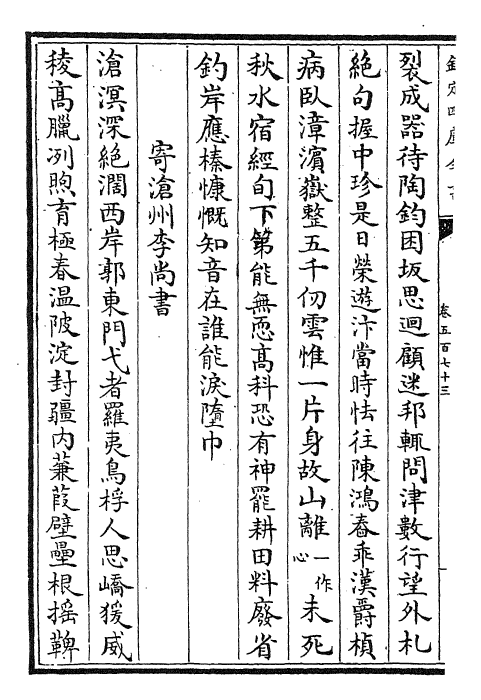 裂成器待陶鈞困坂思迴顧迷邦輒問津數行望外札
絶句握中珍是日榮遊汴當時怯往陳鴻春乖漢爵楨
病臥漳濱嶽整五千仞雲惟一片身故山離一作心未死
秋水宿經旬下第能無恧高科恐有神罷耕田料廢省
釣岸應榛慷慨知音在誰能淚墮巾
寄滄州李尚書
滄溟深絶濶西岸郭東門弋者羅夷鳥桴人思嶠猨威
稜高臘冽煦育極春温陂淀封疆内蒹葭壁壘根摇鞞
欽定四庫全書
卷五百七十三